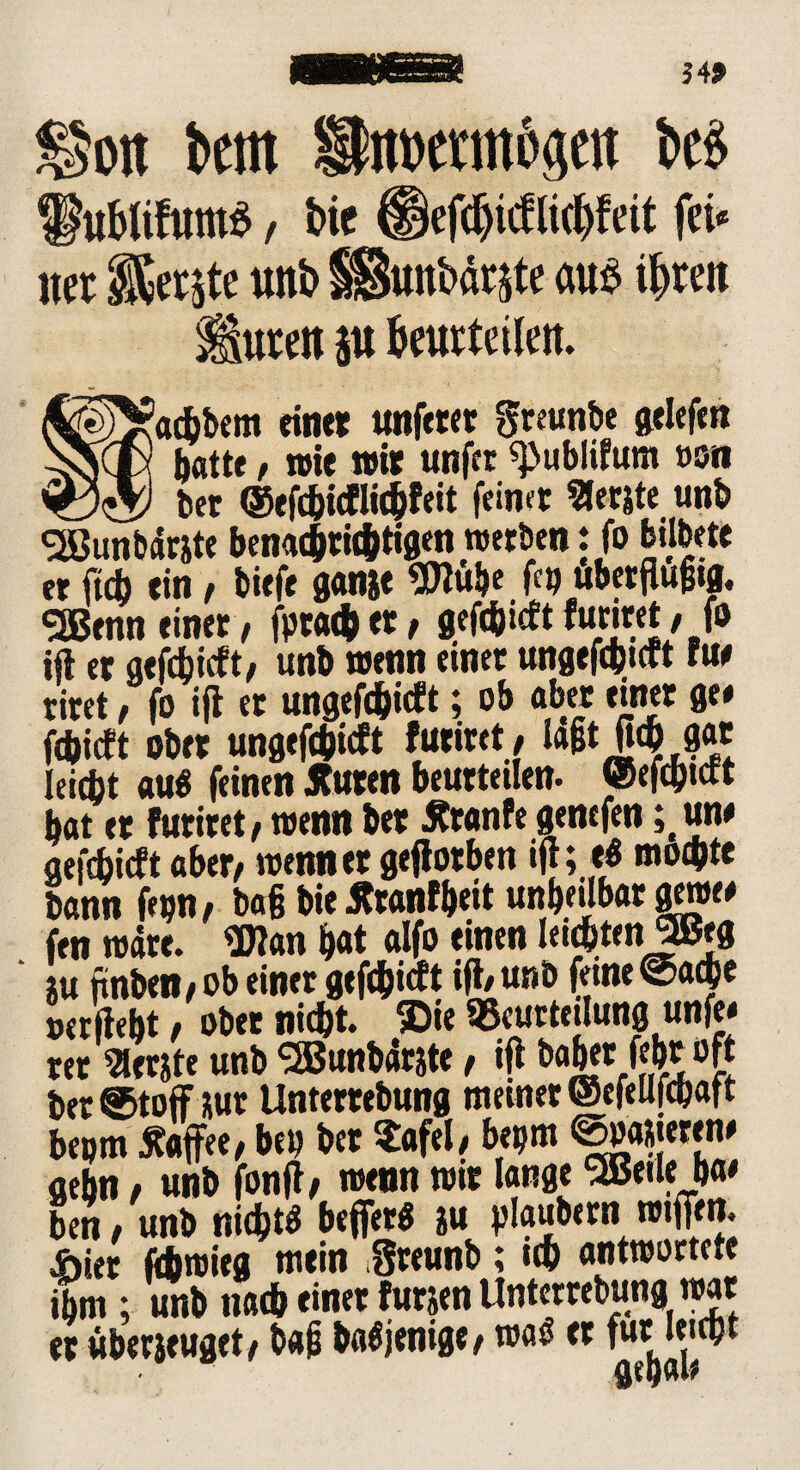 349
Von dem Unvermögen des
Publikums, die Geschicklichkeit sei-
ner Aerzte und Wundärzte aus ihren
Kuren zu beurteilen.
Nachdem einer unserer Freunde gelesen
hatte, wie wir unser Publikum von
der Geschicklichkeit seiner Aerzte und
Wundärzte benachrichtigen werden: so bildete
er sich ein, diese ganze Mühe sey überflüßig.
Wenn einer, sprach er, geschickt kuriret, so
ist er geschickt, und wenn einer ungeschickt ku-
riret, so ist er ungeschickt; ob aber einer ge-
schickt oder ungeschickt kuriret, läßt sich gar
leicht aus seinen Kuren beurteilen. Geschickt
hat er kuriret, wenn der Kranke genesen; un-
geschickt aber, wenn er gestorben ist; es möchte
dann seyn, daß die Krankheit unheilbar gewe-
sen wäre. Man hat also einen leichten Weg
zu finden, ob einer geschickt ist, und seine Sache
versteht, oder nicht. Die Beurteilung unse-
rer Aerzte und Wundärzte, ist daher sehr oft
der Stoff zur Unterredung meiner Gesellschaft
beym Kaffee, bey der Tafel, beym Spazieren-
gehn, und sonst, wenn wir lange Weile ha-
ben, und nichts bessers zu plaudern wissen.
Hier schwieg mein Freund; ich antwortete
ihm; und nach einer kurzen Unterredung war
er überzeuget, daß dasjenige, was er für leicht
gehal-